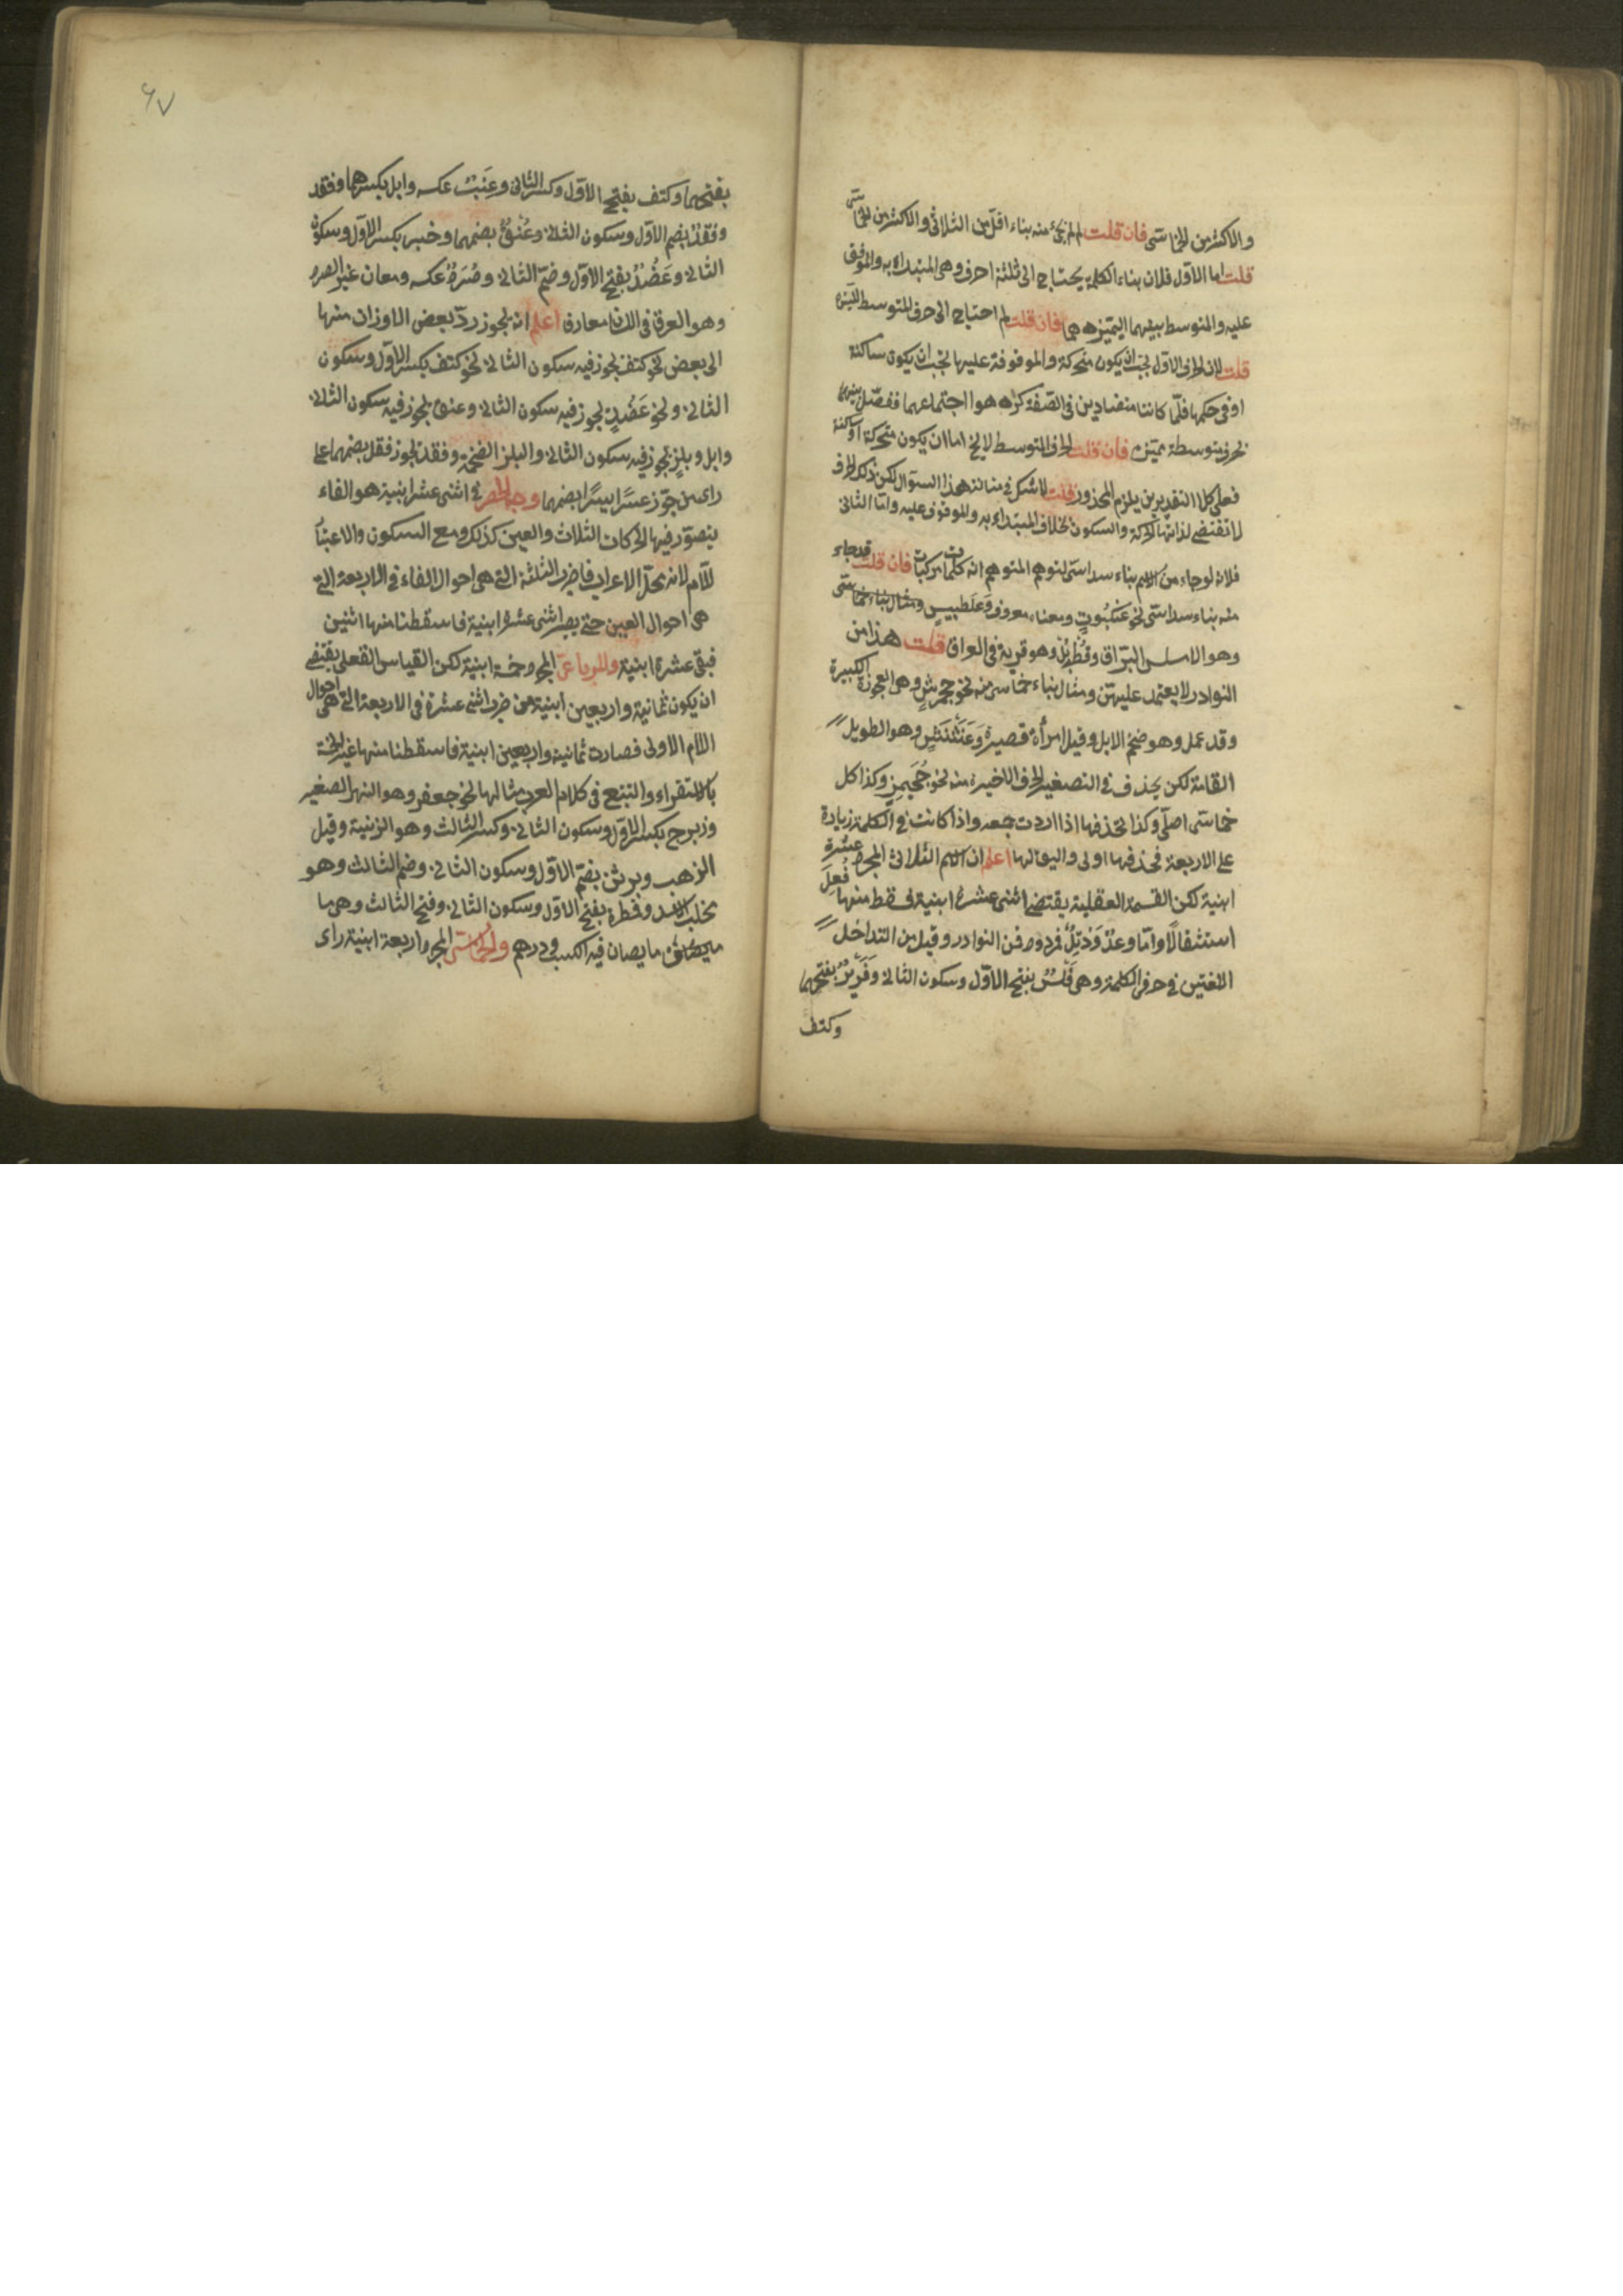 والاكثر من الخماسى فان قلت لم لم يجئ منه بناء اقل من الثلاثى والاكثر من الخماسى
قلت اما الاول فلان بناء الكلمة يحتاج الى ثلثة احرف وهى المبتداء به والموقوف
عليه والمتوسط بينهما ليتميزهما فان قلت لم احتاج الى حرف المتوسط
قلت لان الحرف الاول يجب ان يكون متحركة والموقوفة عليها يجب ان يكون ساكنة
او فى حكمها فلما كانتا متضادين فى الصفة كرهوا اجتماعهما ففصل بينهما
بحرف متوسطة فان قلت الحرف المتوسط لا يخ اما ان يكون متحركة او ساكنة
فعلى كلا التقديرين يلزم المحذور قلت لا شك فى هذا السؤال لكن ذلك الحرف
لا تقتضى لذاتها الحركة والسكون بخلاف المبتداء به والموقوف عليه واما الثانى
فلانه لوجاء من الاسم بناء سداسى لتوهم المتوهم انه كلمات مركبات فان قلت قد جاء
منه بناء سداسى نحو عنكبوت ومعناه معروف وعلطبيس ومثال بناء خماسى
وهو الاملس البراق وهو قرية فى العراق قلت هذا من
النوادر لا يعتمد عليهن ومثال بناء خماسى منه نحو جحمرش وهى العجوزة الكبيرة
وقد عمل وهو ضخم الابل وقيل امرأة قصيرة وهو الطويل
القامة لكن يحذف فى التصغير الحرف الاخيرة منه نحو جحيمر وكذا كل
خماسى اصلى وكذا تحذفها اذا اردت جمعه واذا كانت فى الكلمة زيادة
على الاربعة فحذفها اولى اعلم ان الاسم الثلاثى المجرد عشرة
ابنية لكن القسمة العقلية يقتضى اثنى عشرة ابنية فسقط منها فعل
استثقالا واما وعل ودئل فمن النوادر وقيل من التداخل
اللغتين فى حرفى الكلمة وهى فلس بفتح الاول وسكون الثانى وفرس بفتحهما
وكتف
٦٧
بفتحهما وكتف بفتح الاول وكسر الثانى وعنب عكسه وابل بكسرهما وفقد
وفقد بضم الاول وسكون الثانى وعنق بضمهما وحبر بكسر الاول وسكون
الثانى وعضد بفتح الاول وضم الثانى وصرد عكسه
اعلم انه يجوز رد بعض الاوزان منها
الى بعض نحو كتف يجوز فيه سكون الثانى نحو كتف بكسر الاول وسكون
الثانى ونحو عضد يجوز فيه سكون الثانى وعنق يجوز فيه سكون الثانى
وابل وبلز يجوز فيه سكون الثانى والبلز الضخمة وفقد يجوز فقل بضمهما على
راى من جوز عسرا يسرا بضمهما وجه الحصر فى اثنى عشر ابنية هو الفاء
يتصور فيها الحركات الثلاث والعين كذلك ومع السكون والاعتبار
للام لانه محل الاعراب فاضرب الثلثة التى هى احوال الفاء فى الاربعة التى
هى احوال العين حتى يصير اثنى عشرة ابنية فاسقطنا منها اثنين
فبقى عشرة ابنية وللرباعى المجرد خمسة ابنية لكن القياس العقلى يقتضى
ان يكون ثمانية واربعين ابنية من ضرب اثنى عشرة فى الاربعة التى هى احوال
اللام الاولى فصارت ثمانية واربعين ابنية فاسقطنا منها غير الخمسة
بالاستقراء والتتبع فى كلام العرب مثالها نحو جعفر وهو النهر الصغير
وزبرج بكسر الاول وسكون الثانى وكسر الثالث وهو الزينة وقيل
الذهب وبرثن بضم الاول وسكون الثانى وضم الثالث وهو
مخلب الاسد وقمطرة بفتح الاول وسكون الثانى وفتح الثالث وهى ما
ما يصان فيه الكتب ودرهم والخماسى المجرد اربعة ابنية راى